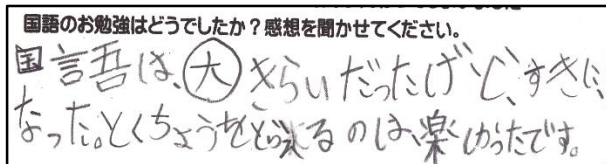 国語のお勉強はどうでしたか？感想を聞かせてください。
国語は、大きらいだったけど、すきに、
なった。とくちょうをとらえるのは、楽しかったです。